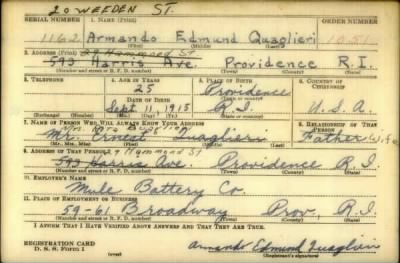 20 WEEDEN ST.
SERIAL NUMBER 1. NAME (Print) ORDER NUMBER
1162 Armando Edmund Quaglieri 1051
(First) (Middle) (Last)
2. ADDRESS (Print) 29 Hammond St
593 Harris Ave. Providence R.I.
(Number and street or R. F. D. number) (Town) (County) (State)
3. TELEPHONE 4. AGE IN YEARS 5. PLACE OF BIRTH 6. COUNTRY OF CITIZENSHIP
25 Providence
DATE OF BIRTH (Town or county)
Sept 11, 1915 R.I. U.S.A.
(Exchange) (No.) (Mo.) (Day) (Yr.) (State or country)
7. NAME OF PERSON WHO WILL ALWAYS KNOW YOUR ADDRESS 8. RELATIONSHIP OF THAT PERSON
Mrs.
Mr. Ernest Quaglieri Father Wife
(Mr., Mrs., Miss) (First) (Middle) (Last)
9. ADDRESS OF THAT PERSON 29 Hammond St
593 Harris Ave. Providence R.I.
(Number and street or R. F. D. number) (Town) (County) (State)
10. EMPLOYER'S NAME
Mule Battery Co.
11. PLACE OF EMPLOYMENT OR BUSINESS
59-61 Broadway Prov, R.I.
(Number and street or R. F. D. number) (Town) (County) (State)
I AFFIRM THAT I HAVE VERIFIED ABOVE ANSWERS AND THAT THEY ARE TRUE.
REGISTRATION CARD
D. S. S. FORM 1 (over) Armando Edmund Quaglieri
(Registrant's signature)